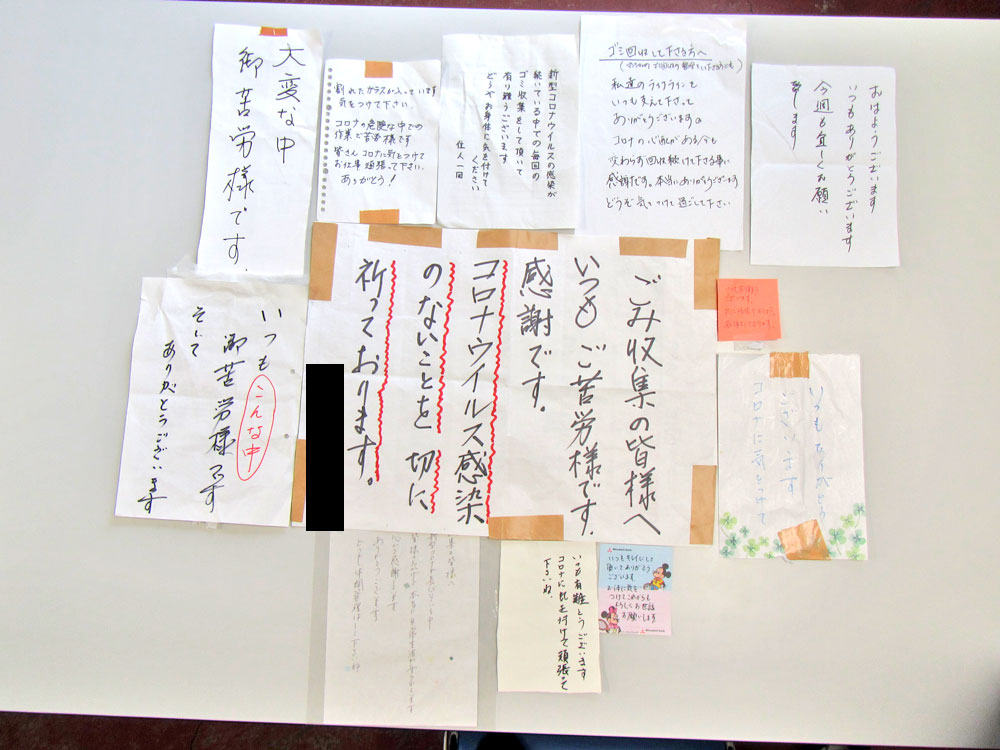 大変な中
御苦労様です.
割れたガラスが入っています
気をつけて下さい。
コロナの危険な中での
作業で苦労様です
皆さんコロナに気をつけて
お仕事頑張って下さい.
ありがとう!
新型コロナウイルスの感染が
続いている中での毎回の
ゴミ収集をして頂いて
有り難うございます
どうぞお身体に気を付けて
ください
住人一同
ゴミ回収して下さる方へ
私達のライフラインを
いつも支えて下さって
ありがとうございます。
コロナの心配がある今も
変わらず回収続けて下さる事に
感謝です。本当にありがとうございます
どうぞ気をつけて過ごして下さい
おはようございます
いつもありがとうございます
今週も宜しくお願い
致します
ごみ収集の皆様へ
いつもご苦労様です.
感謝です。
コロナウイルス感染
のないことを切に
祈っております。
いつもこんな中
御苦労様です
そして
ありがとうございます
いつもありがとう
ございます
コロナに気をつけて
いつも有難とうございます
コロナに気を付けて頑張って
下さいね.
いつもキレイにして
頂いてありがとう
ございます
お体に気を
つけてこれからも
よろしくお世話
お願いします